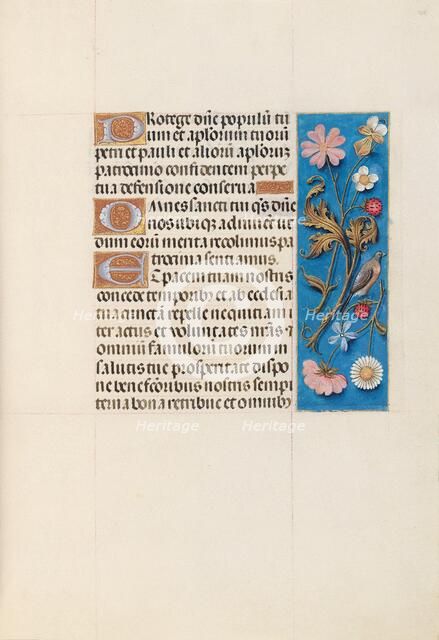 Rotege dn̄e populū tu
um et aplorum tuorū
petri et pauli et alioru aplorū
patrocinio confidentem perpe
tua defensione conserva
Omnes sancti tui qs̄ dn̄e
nos ubiqȝ adiuvent ut
dum eorū merita recolimus pa
trocinia sentiamus.
Et pacem tuam nostris
concede temporibꝰ et ab ecclesia
tua cuncta repelle nequitiam it
er actus et voluntates nrās
omniū famulorū tuorum in
salutis tue prosperitate dispo
ne benefactoribus nostris sempi
terna bona retribue et omnibꝰ
Heritage Heritage
Heritage Heritage
Heritage Heritage